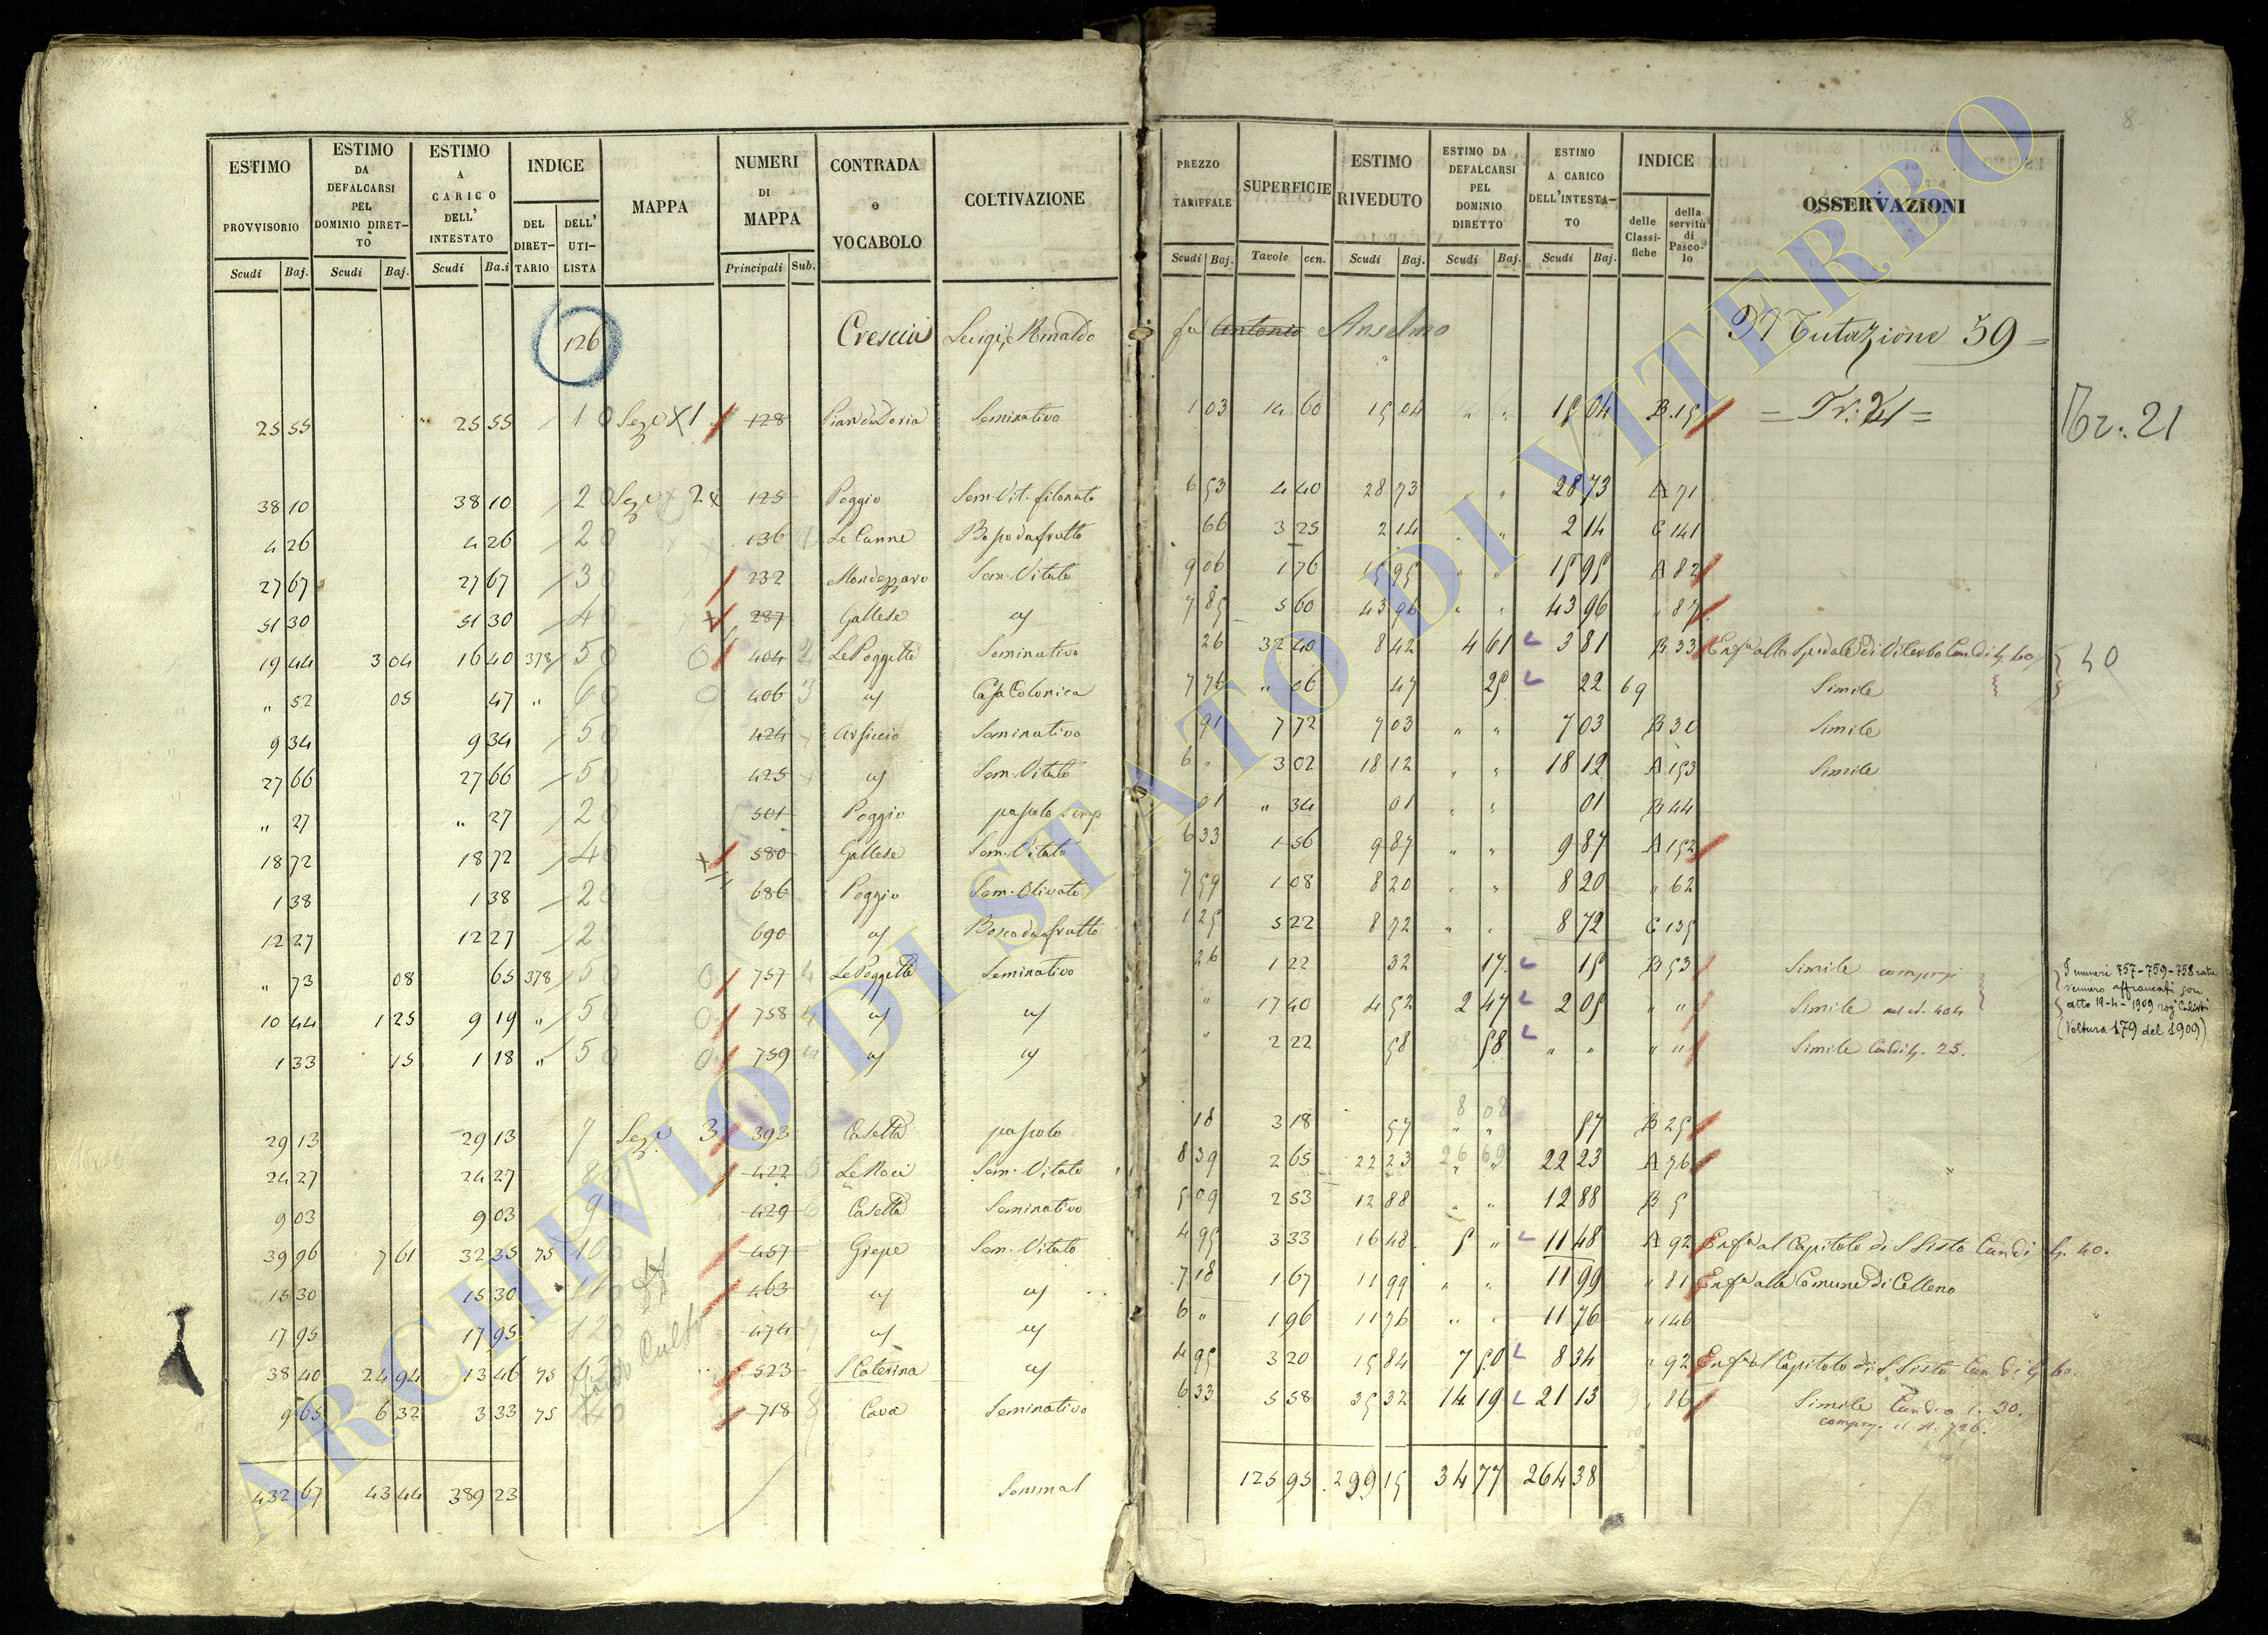 8
ESTIMO PROVVISORIO | ESTIMO DA DEFALCARSI PEL DOMINIO DIRETTO | ESTIMO A CARICO DELL' INTESTATO | INDICE | MAPPA | NUMERI DI MAPPA | CONTRADA o VOCABOLO | COLTIVAZIONE | PREZZO TARIFFALE | SUPERFICIE | ESTIMO RIVEDUTO | ESTIMO DA DEFALCARSI PEL DOMINIO DIRETTO | ESTIMO A CARICO DELL'INTESTATO | INDICE | OSSERVAZIONI
DEL DIRETTARIO | DELL' UTILISTA | delle Classifiche | della servitù di Pascolo
Scudi | Baj. | Scudi | Baj. | Scudi | Ba.i | Principali | Sub. | Scudi | Baj. | Tavole | cen. | Scudi | Baj. | Scudi | Baj. | Scudi | Baj.
126 Crescia Luigi, Rinaldo fu Antonio Anselmo Mutazione 59
25 55 | 25 55 | 1 | Sez. 1 | 128 | Pian di Doria | Seminativo | 1 03 | 14 60 | 15 04 | " " | 15 04 | B. 15 | = Tr: 21 = | Tr: 21
38 10 | 38 10 | 2 | Sez. 2 | 125 | Poggio | Sem. Vit. filonato | 6 53 | 4 40 | 28 73 | " " | 28 73 | A 71
4 26 | 4 26 | 2 | 136 | Le Canne | Bosco da frutto | 66 | 3 25 | 2 14 | " " | 2 14 | C 141
27 67 | 27 67 | 3 | 232 | Sem. Vitato | 9 06 | 1 76 | 15 95 | " " | 15 95 | A 82
51 30 | 51 30 | 4 | 287 | Gallese | 7 85 | 5 60 | 43 96 | " " | 43 96 | " 87
19 44 | 3 04 | 16 40 | 378 | 5 | 404 | 2 | Le Poggette | Seminativo | 26 | 32 40 | 8 42 | 4 61 | 3 81 | B 33 | Enf.a allo Spedale di Viterbo | 40
" 52 | 05 | 47 | " | 6 | 406 | 3 | Casa Colonica | 7 76 | " 06 | 47 | 25 | 22 | 69 | Simile
9 34 | 9 34 | 5 | 424 | Arsiccio | Seminativo | 91 | 7 72 | 7 03 | " " | 7 03 | B 30 | Simile
27 66 | 27 66 | 5 | 425 | Sem. Vitato | 6 " | 3 02 | 18 12 | " " | 18 12 | A 153 | Simile
" 27 | " 27 | 2 | 501 | Poggio | pascolo semp | 01 | " 34 | 01 | " " | 01 | B 44
18 72 | 18 72 | 4 | 580 | Gallese | Sem. Vitato | 6 33 | 1 56 | 9 87 | " " | 9 87 | A 152
1 38 | 1 38 | 2 | 686 | Poggio | Sem. Olivato | 7 59 | 1 08 | 8 20 | " " | 8 20 | " 62
12 27 | 12 27 | 2 | 690 | Bosco da frutto | 1 25 | 5 22 | 8 72 | " " | 8 72 | C 135
" 73 | 08 | 65 | 378 | 5 | 757 | 4 | Le Poggette | Seminativo | 26 | 1 22 | 32 | 17 | 15 | B 53 | Simile | I numeri 757-759-758 rata
10 44 | 1 25 | 9 19 | " | 5 | 758 | 4 | " | 17 40 | 4 52 | 2 47 | 2 05 | " " | Simile | vennero affrancati con atto 19-4-1909
1 33 | 15 | 1 18 | " | 5 | 759 | " | 2 22 | 58 | 58 | " " | " " | Simile 25. | (Voltura 179 del 1909)
8 08
29 13 | 29 13 | 7 | Sez. 3 | 393 | Casetta | pascolo | 18 | 3 18 | 57 | " " | 57 | B 25
24 27 | 24 27 | 8 | 422 | Le Noci | Sem. Vitato | 8 39 | 2 65 | 22 23 | 26 69 | 22 23 | A 76
9 03 | 9 03 | 9 | 429 | 6 | Casetta | Seminativo | 5 09 | 2 53 | 12 88 | " " | 12 88 | B 5
39 96 | 7 61 | 32 35 | 75 | 10 | 457 | Grepe | Sem. Vitato | 4 95 | 3 33 | 16 48 | 5 " | 11 48 | A 92 | Enf.a al Capitolo di S Sisto 40.
15 30 | 15 30 | 463 | 7 18 | 1 67 | 11 99 | " " | 11 99 | " 81 | Enf.a alla Comune di Celleno
17 95 | 17 95 | 12 | 474 | 6 " | 1 96 | 11 76 | " " | 11 76 | " 146
38 40 | 24 94 | 13 46 | 75 | 13 | 523 | S Caterina | 4 95 | 3 20 | 15 84 | 7 50 | 8 34 | " 92 | Enf.a al Capitolo di S. Sisto 60.
9 65 | 6 32 | 3 33 | 75 | 718 | 8 | Cava | Seminativo | 6 33 | 5 58 | 35 32 | 14 19 | 21 13 | " 86 | Simile 30.
432 67 | 43 44 | 389 23 | Somma | 125 95 | 299 15 | 34 77 | 264 38
ARCHIVIO DI STATO DI VITERBO